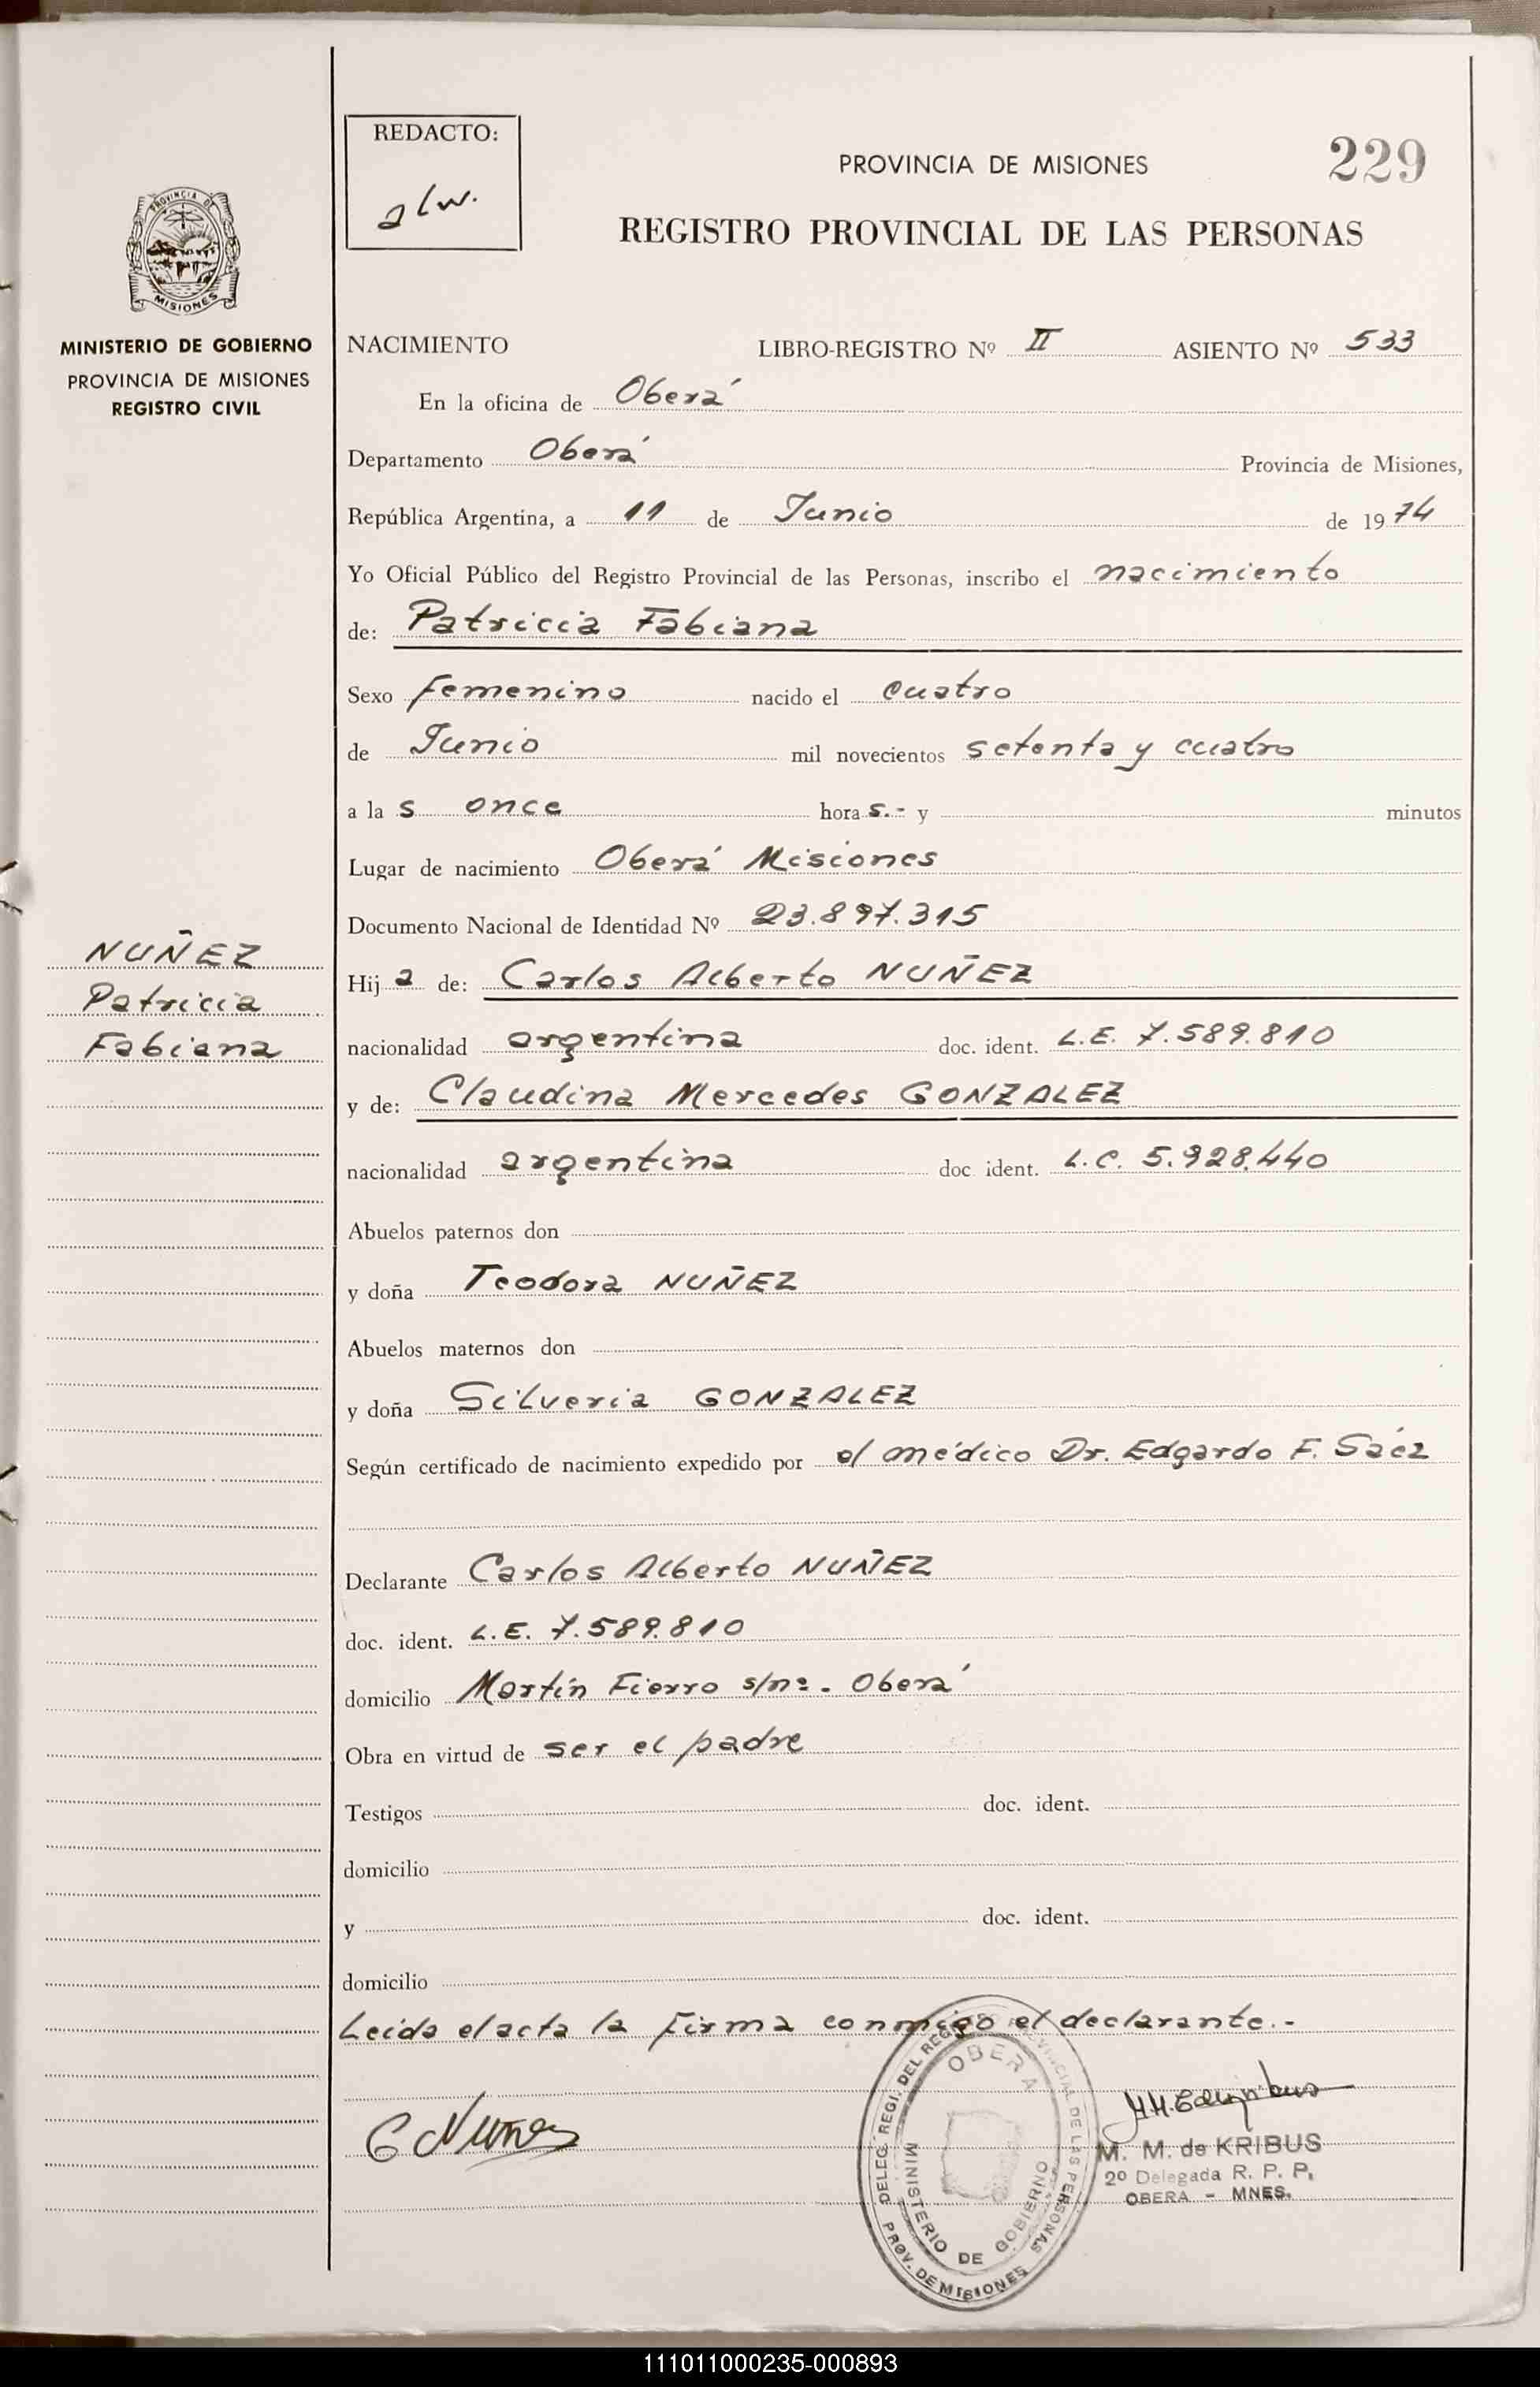 REDACTO:
alw.
PROVINCIA DE MISIONES
229
REGISTRO PROVINCIAL DE LAS PERSONAS
PROVINCIA DE
MISIONES
MINISTERIO DE GOBIERNO
PROVINCIA DE MISIONES
REGISTRO CIVIL
NACIMIENTO LIBRO-REGISTRO Nº II ASIENTO Nº 533
En la oficina de Oberá
Departamento Oberá Provincia de Misiones,
República Argentina, a 11 de Junio de 1974
Yo Oficial Público del Registro Provincial de las Personas, inscribo el nacimiento
de: Patricia Fabiana
Sexo femenino nacido el cuatro
de Junio mil novecientos setenta y cuatro
a la s once hora s.- y minutos
Lugar de nacimiento Oberá Misiones
Documento Nacional de Identidad Nº 23.897.315
NUÑEZ
Patricia
Fabiana
Hij a de: Carlos Alberto NUÑEZ
nacionalidad argentina doc. ident. L.E. 7.589.810
y de: Claudina Mercedes GONZALEZ
nacionalidad argentina doc ident. L.C. 5.928.440
Abuelos paternos don
y doña Teodora NUÑEZ
Abuelos maternos don
y doña Silveria GONZALEZ
Según certificado de nacimiento expedido por el médico Dr. Edgardo F. Sáez
Declarante Carlos Alberto NUÑEZ
doc. ident. L.E. 7.589.810
domicilio Martín Fierro s/nº. Oberá
Obra en virtud de ser el padre
Testigos doc. ident.
domicilio
y doc. ident.
domicilio
Leida el acta la firma conmigo el declarante.-
C Nuñez
DELEG. REGI. DEL REGISTRO PROVINCIAL DE LAS PERSONAS
OBERA
MINISTERIO DE GOBIERNO
PROV. DE MISIONES
M. M. de KRIBUS
2º Delegada R. P. P.
OBERA - MNES.
111011000235-000893